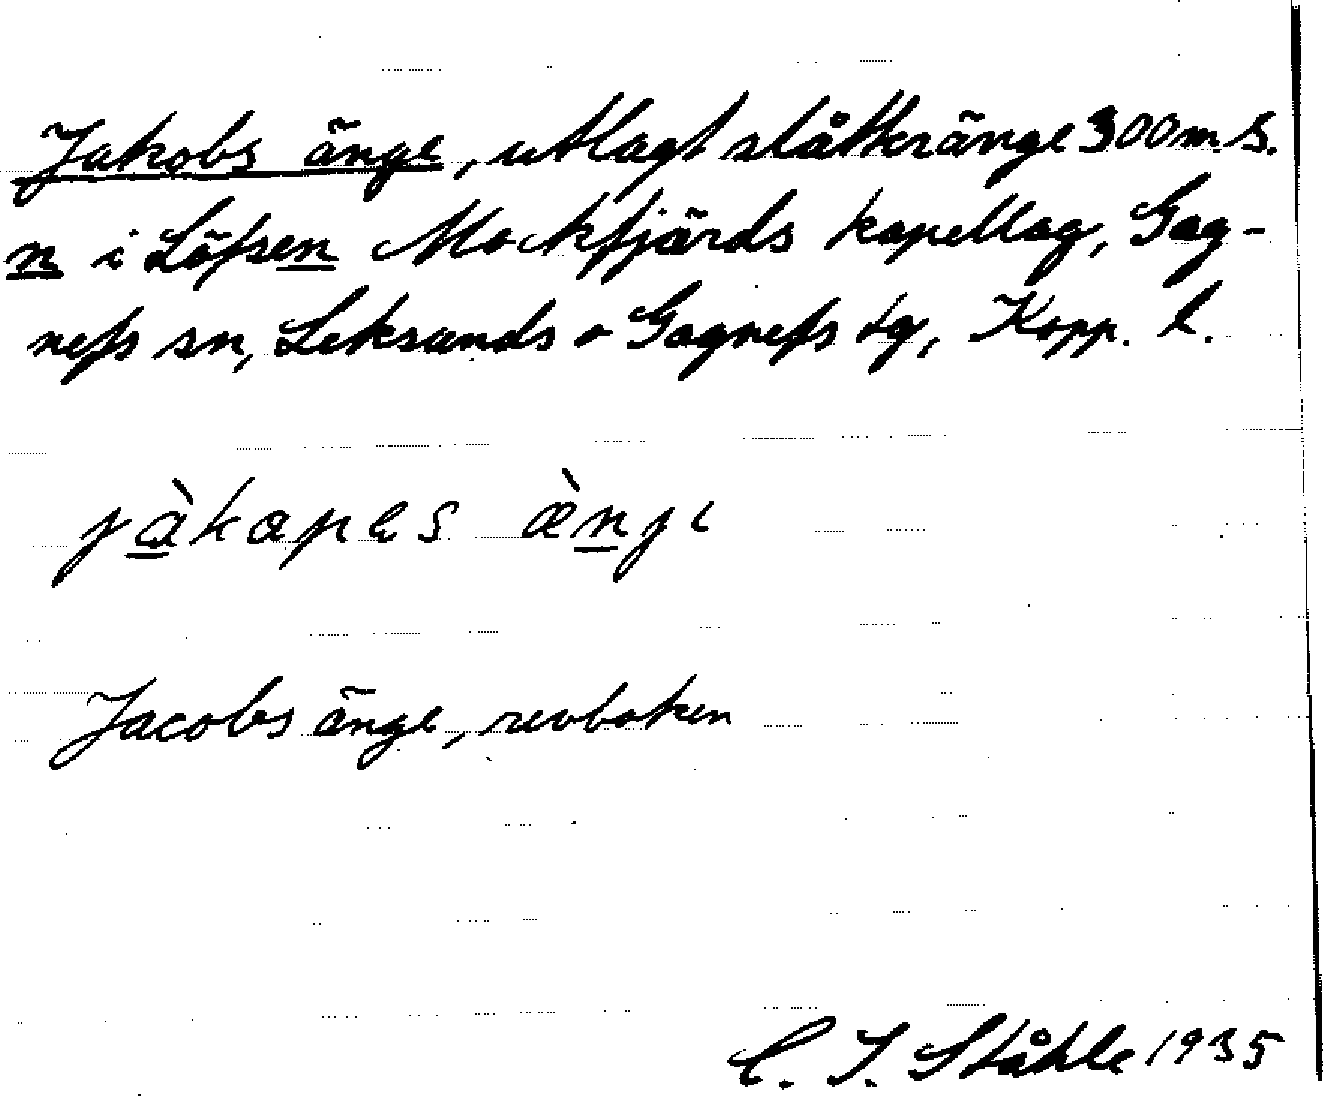 Jakobs änge, utlagt slåtteränge 300 m S.
n i Löfsen Mockfjärds kapellag, Gag-
nefs sn, Leksands o Gagnefs tg, Kopp. l.
jàkapes ænje
Jacobs änge, revboken
C. I. Ståhle 1935